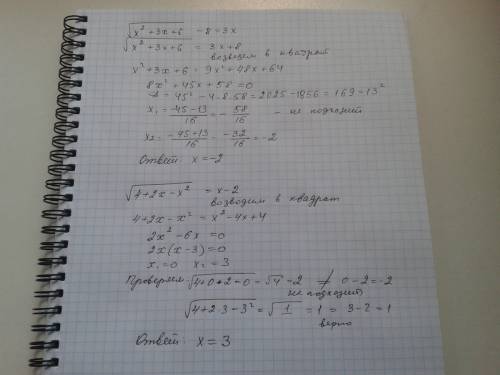 √(x²+3x+6) - 8 = 3x
√(x²+3x+6) = 3x+8
возводим в квадрат
x²+3x+6 = 9x²+48x+64
8x²+45x+58=0
D = 45²-4·8·58 = 2025-1856 = 169 = 13²
x₁ = (-45-13)/16 = -58/16 - не подходит
x₂ = (-45+13)/16 = -32/16 = -2
Ответ: x=-2
√(4+2x-x²) = x-2
возводим в квадрат
4+2x-x² = x²-4x+4
2x²-6x=0
2x(x-3)=0
x₁=0 x₂=3
Проверяем: √(4+0+2+0) = √4 = 2 ≠ 0-2=-2
не подходит
√(4+2·3-3²) = √1 = 1 = 3-2=1
верно
Ответ: x=3